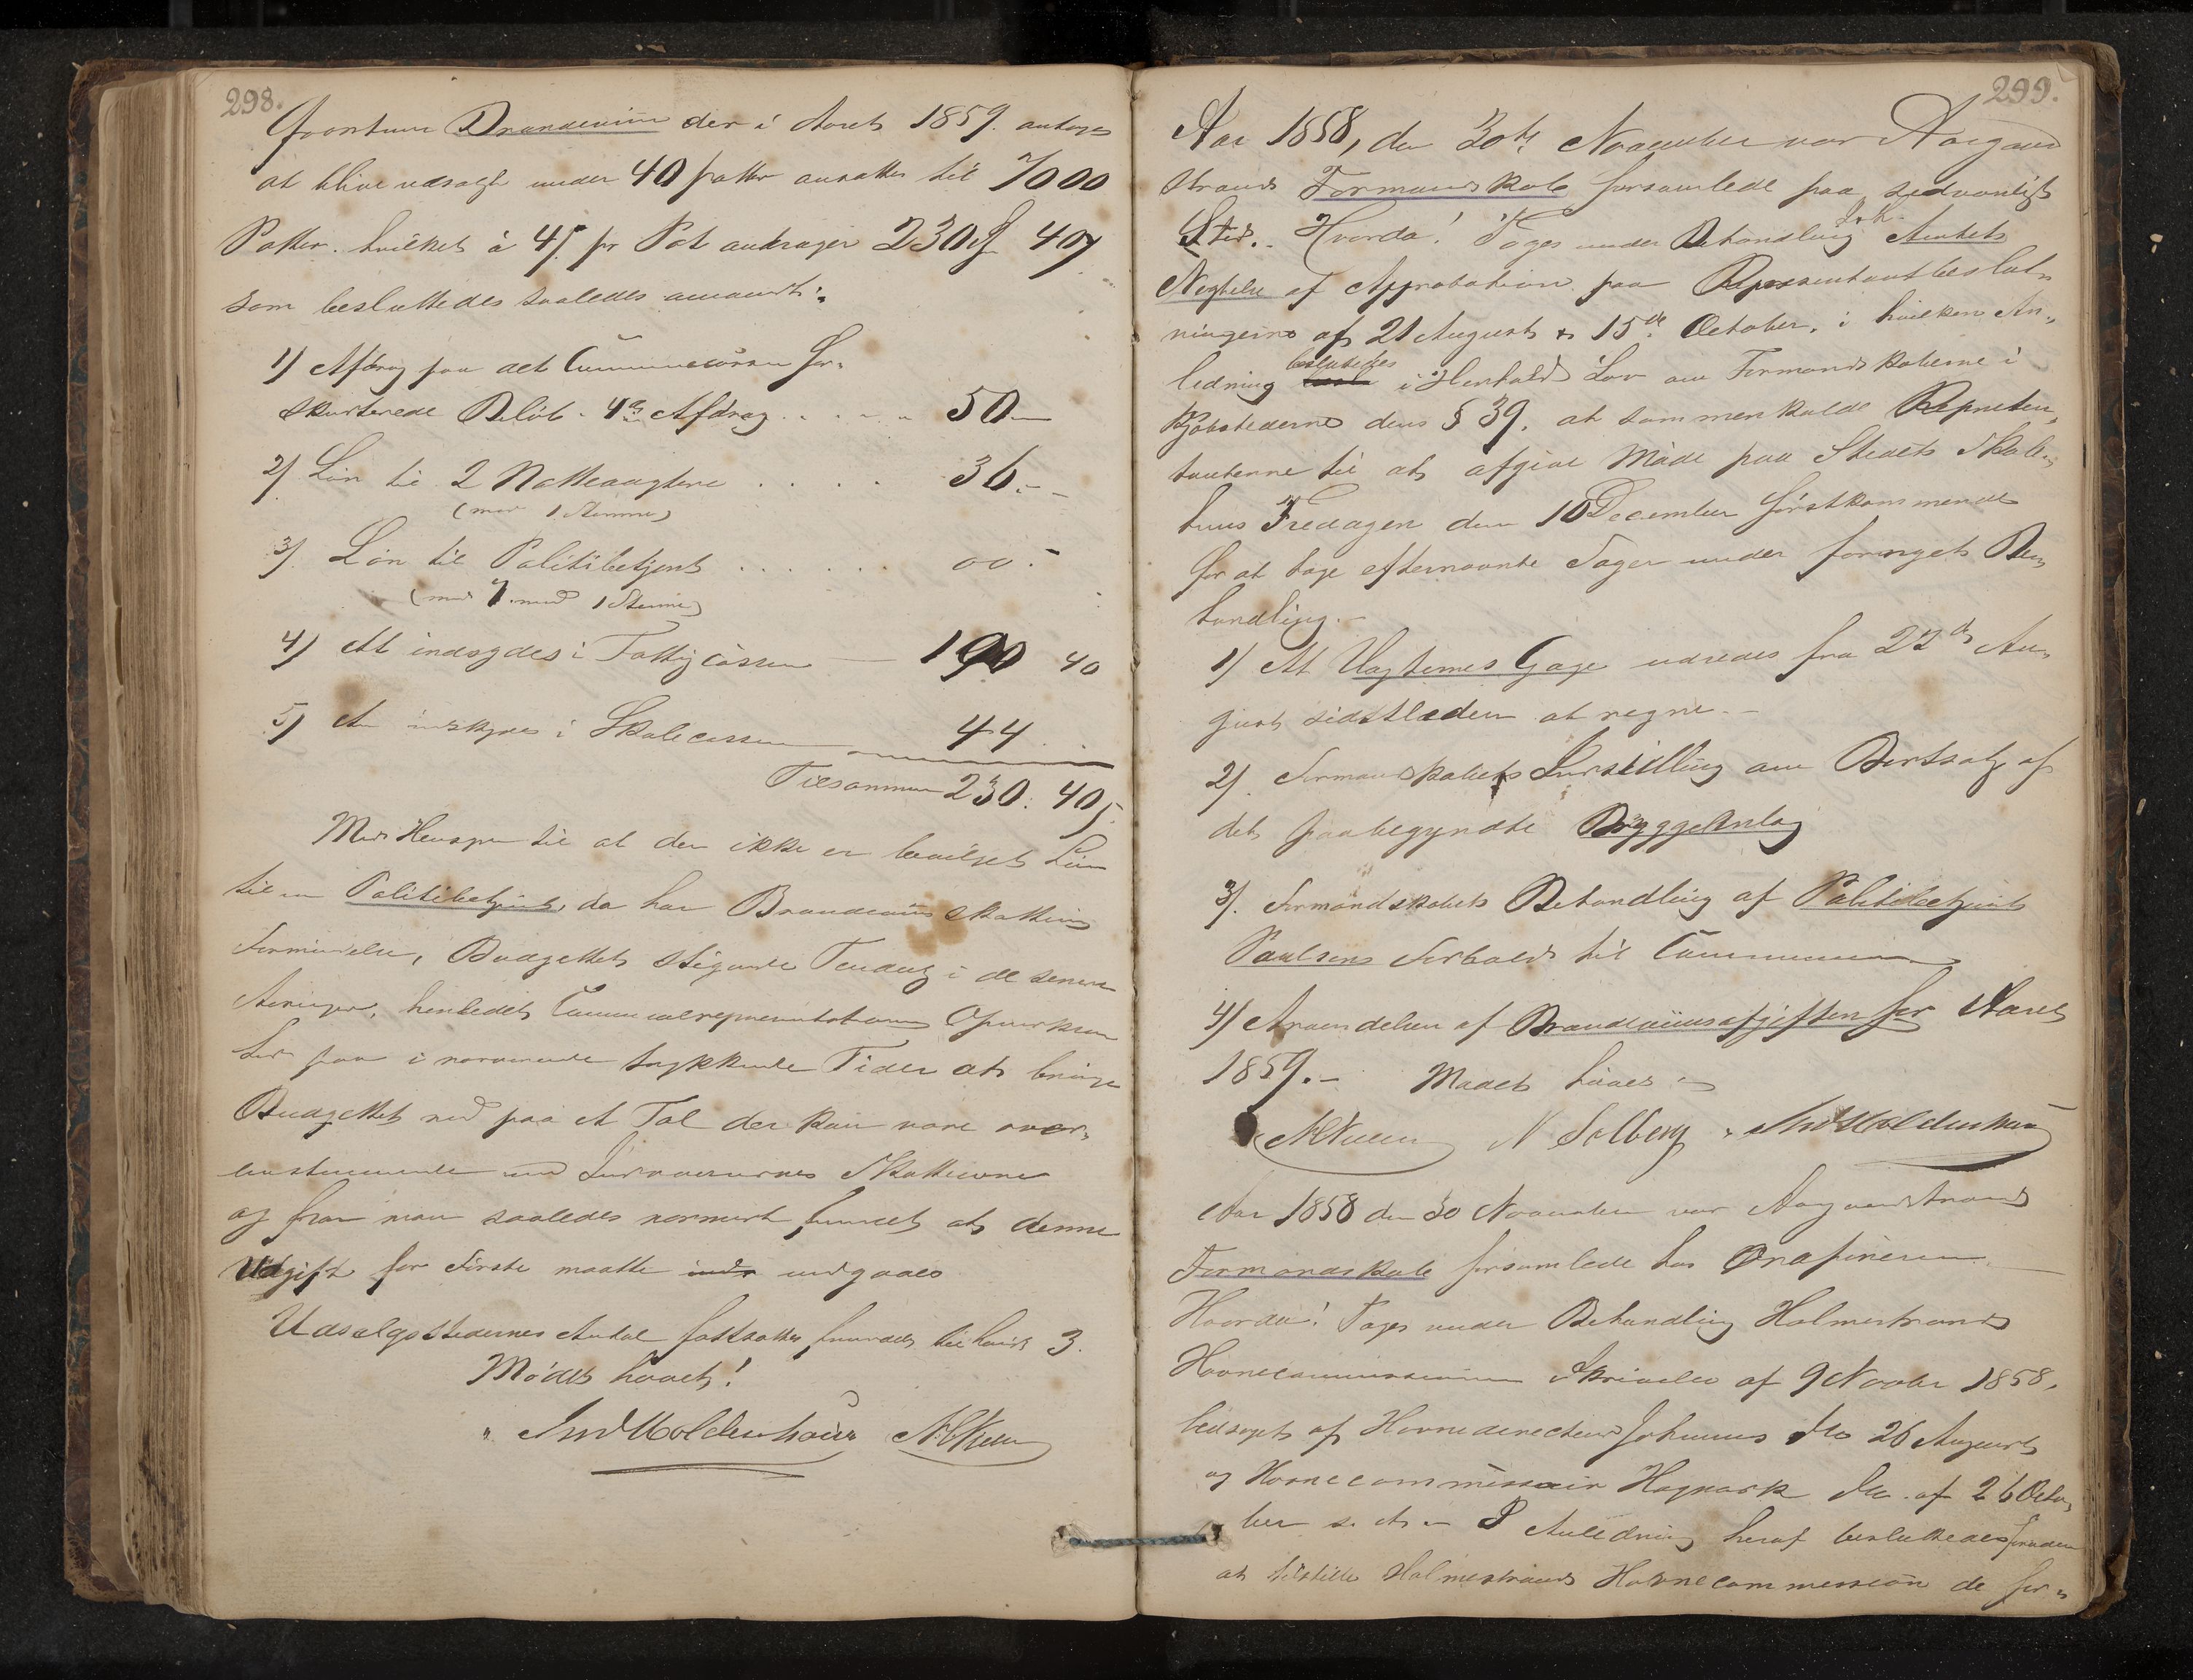 298.
Qvantum Brændeviin der i Aaret 1859. antages
at blive udsolgt under 40 potter ansattes til 7000
Potter. hvilket à 4 s. pr Pot andrager 230 40
som besluttedes saaledes anvendt:
1) Afdrag paa det Communecassen for-
skuterede Beløb. 4de Afdrag . . . . . 50 —
2) Løn til 2 Nattevægtere . . . . 36. - -
(mod 1 Stemme)
3) Løn til Politibetjent . . . . . . 00. -
(mod 1 Stemme)
4) At indskydes i Fattigcassen — 190 40
5) At indskydes i Skolecassen 44 . .
Tilsammen 230. 40
Med Hensyn til at der ikke er bevilget Løn
til en Politibetjent, da har Brændeviinsskattens
Formindelse, Budgettets stigende Tendenz i de senere
Aaringer, henledet Communerepræsentationens Opmærksom
hed paa i nærværende trykkende Tider at bringe
Budgettet ned paa et Tal der kan være over-
eensstemmende med Indvaanernes Skatteevne
og har man saaledes nærmest fundet at denne
Udgift for Første maatte undgaaes
Udsalgsstedernes Antal fastsattes fremdeles til høist 3.
Mødet hævet!
299.
Aar 1858, den 30te November var Aasgaard
strands Formandskab forsamlede paa sædvanligt
Sted. Hvorda! Toges under Behandling Amtets
Negtelse af Approbation paa Repræsentantbeslut-
ningerne af 21 August & 15de October, i hvilken An-
ledning besluttedes i Henhold Lov om Formandskaberne i
Kjøbstederne dens § 39. at sammenkalde Repræsen-
tanterne til at afgive Møde paa Stedets Skole-
huus Fredagen den 10 December førstkommende
for at tage efternævnte Sager under fornyet Be-
handling.
1) At Vagternes Gage udredes fra 22de Au-
gust sidstleden at regne. -
2) Formandskabets Indstilling om Bortsalg af
det paabegyndte BryggeAnlæg
3). Formandskabets Behandling af Politibetjent
Paulsens Forhold til Communen
4) Anvendelsen af Brændeviinsafgiften for Aaret
1859. - Mødet hævet
N Solberg
Aar 1858 den 30 November var Aasgaardstrands
Formandskab forsamlede hos Ordføreren
Hvorda! Toges under Behandling Holmestrands
Havnecommissions Skrivelse af 9 Novbr 1858.
ledsaget af Havnedirecteur Dto 26 August
og Havnecommissair Dto af 26 Octo-
ber s. A. - I Anledning heraf besluttedes
at tilstille Holmestrands Havnecommission de for-